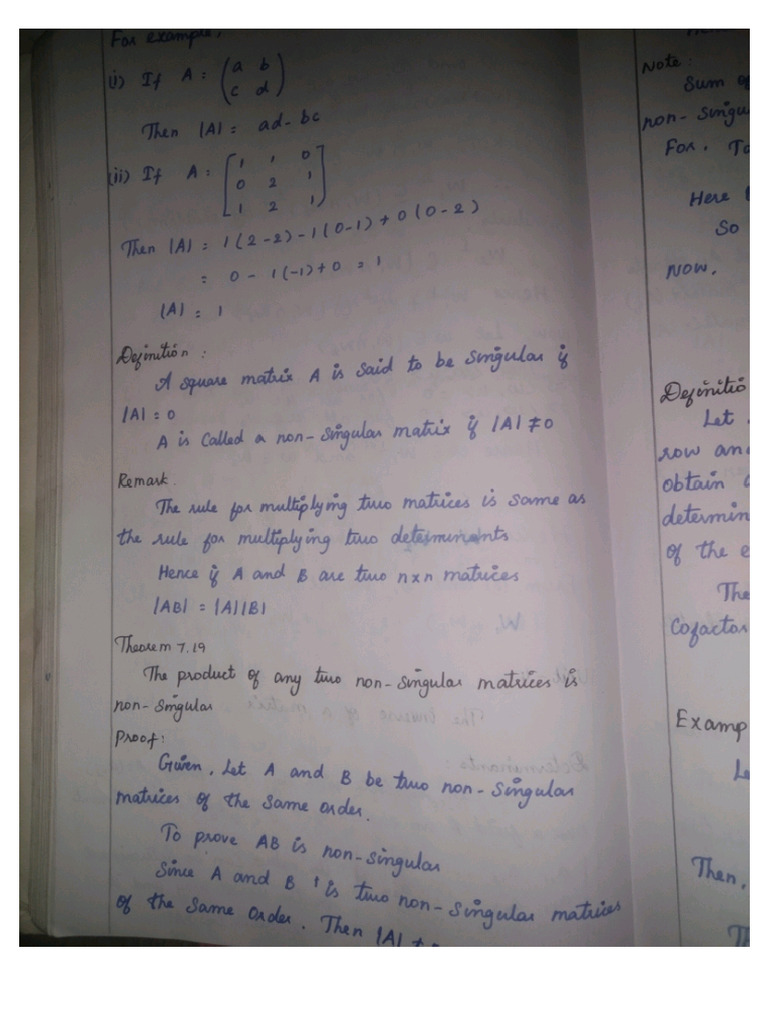 For example,
(i) If A = (a b
c d)
Then |A| = ad - bc
(ii) If A = [1 1 0
0 2 1
1 2 1]
Then |A| = 1(2-2)-1(0-1)+0(0-2)
= 0 - 1(-1)+0 = 1
|A| = 1
Definition :
A square matrix A is said to be singular if
|A| = 0
A is called a non-singular matrix if |A| ≠ 0
Remark.
The rule for multiplying two matrices is same as
the rule for multiplying two determinants
Hence if A and B are two n×n matrices
|AB| = |A||B|
Theorem 7.19
The product of any two non-singular matrices is
non-singular
Proof:
Given, Let A and B be two non-singular
matrices of the same order.
To prove AB is non-singular
Since A and B is two non-singular matrices
of the same order. Then |A| ≠
Note:
Sum of
non-singu
For. To
Here
So
Now.
Definitio
Let
row and
obtain
determin
of the e
The
Cofactor
Examp
Le
Then,
Th